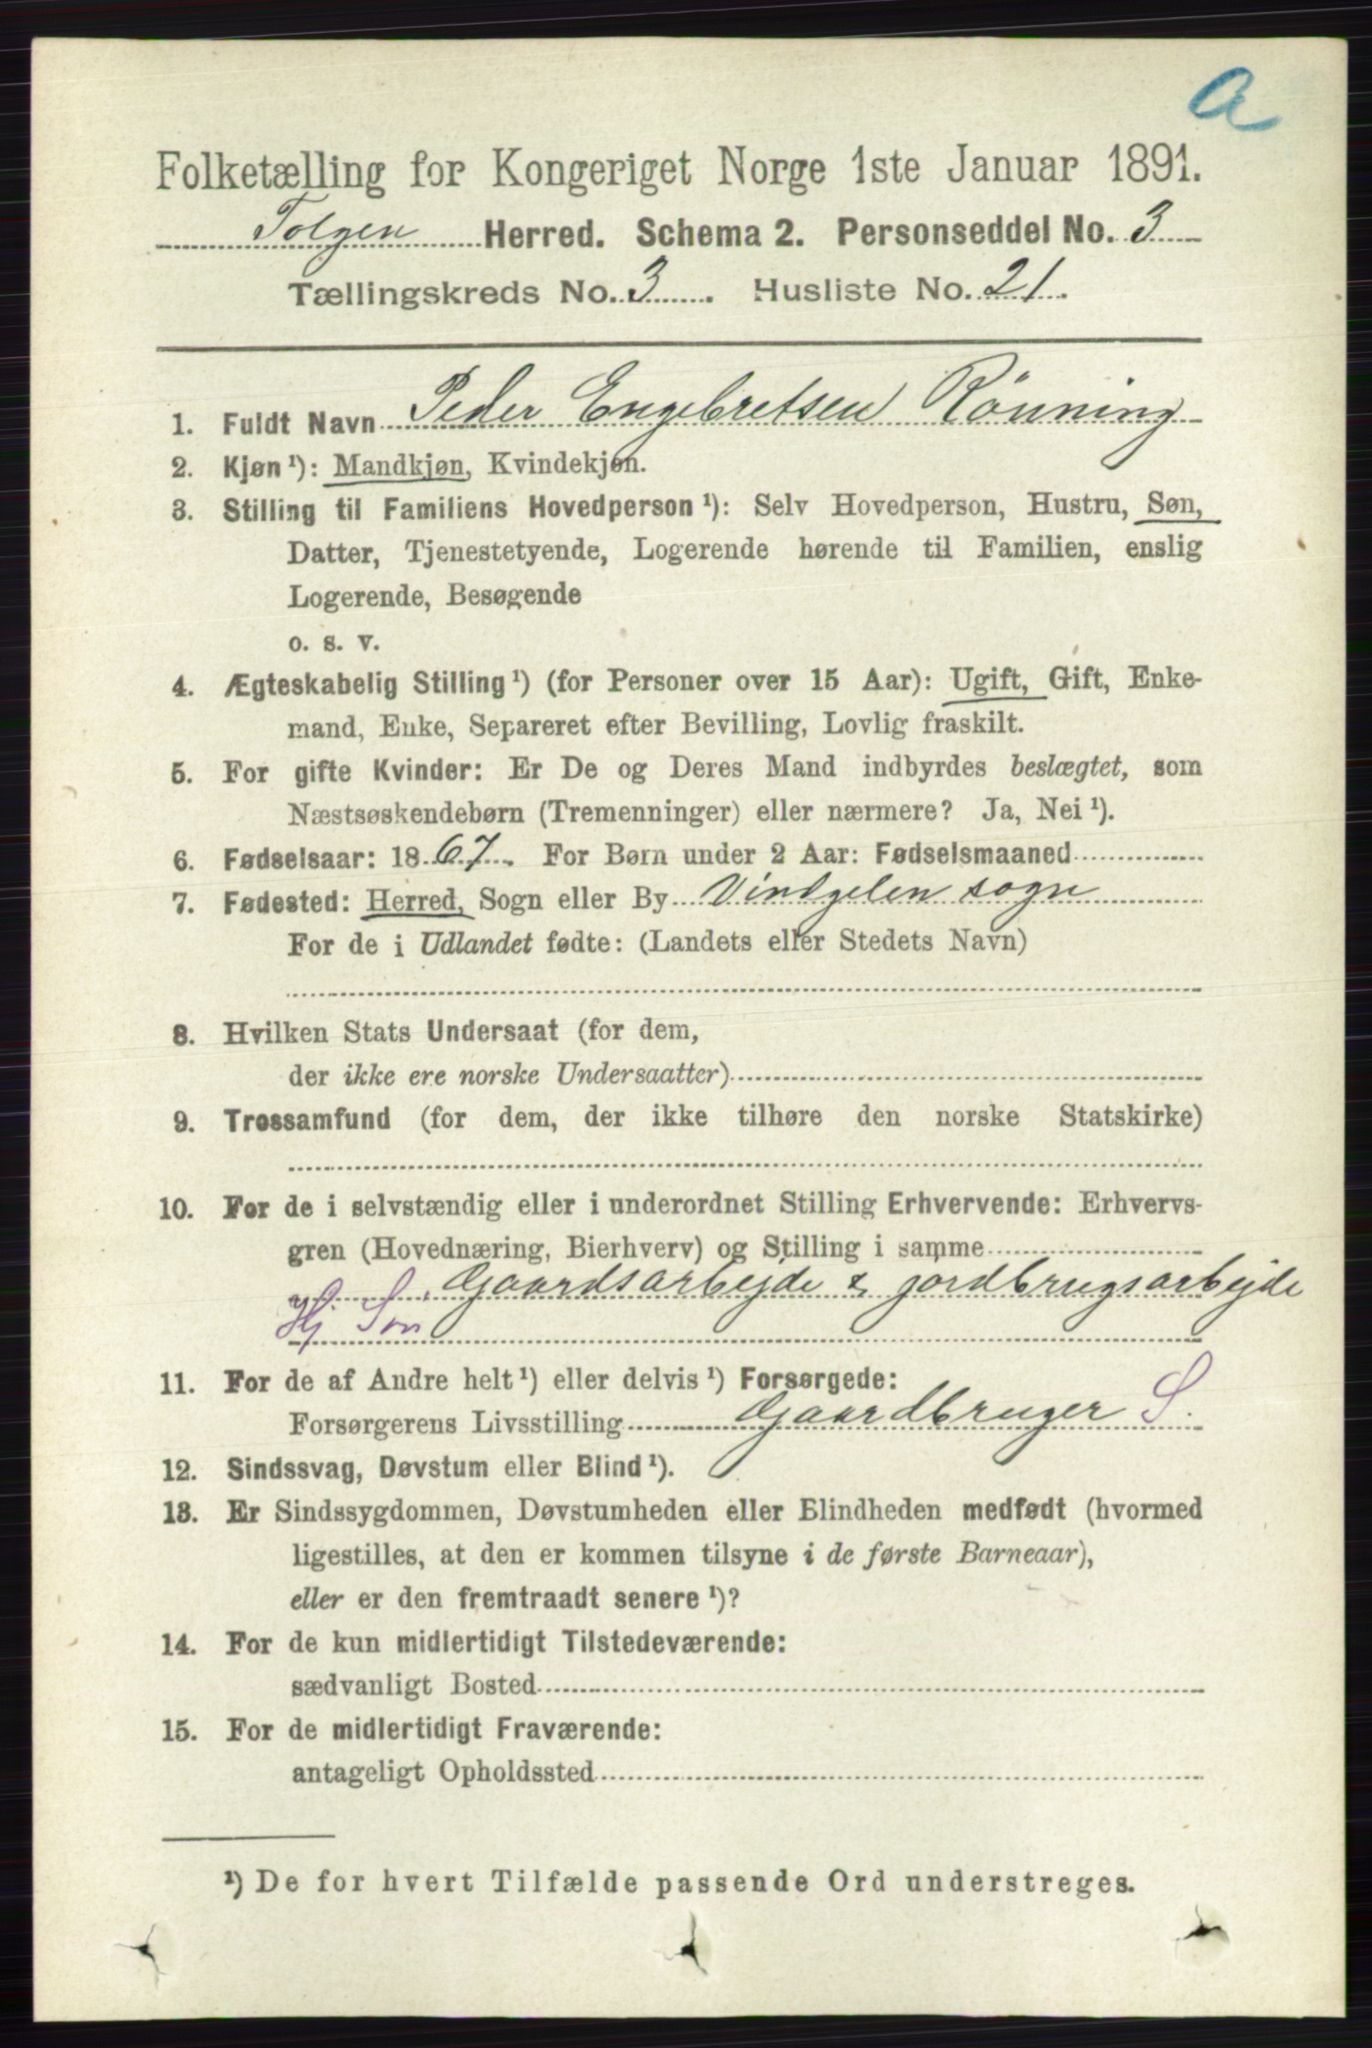 a
Folketælling for Kongeriget Norge 1ste Januar 1891.
Tolgen Herred. Schema 2. Personseddel No. 3
Tællingskreds No. 3. Husliste No. 21.
1. Fuldt Navn Peder Engebretsen Rönning
2. Kjøn¹): Mandkjøn, Kvindekjøn.
3. Stilling til Familiens Hovedperson¹): Selv Hovedperson, Hustru, Søn,
Datter, Tjenestetyende, Logerende hørende til Familien, enslig
Logerende, Besøgende
o. s. v.
4. Ægteskabelig Stilling¹) (for Personer over 15 Aar): Ugift, Gift, Enke-
mand, Enke, Separeret efter Bevilling, Lovlig fraskilt.
5. For gifte Kvinder: Er De og Deres Mand indbyrdes beslægtet, som
Næstsøskendebørn (Tremenninger) eller nærmere? Ja, Nei¹).
6. Fødselsaar: 1867. For Børn under 2 Aar: Fødselsmaaned
7. Fødested: Herred, Sogn eller By Vindgelen sogn
For de i Udlandet fødte: (Landets eller Stedets Navn)
8. Hvilken Stats Undersaat (for dem,
der ikke ere norske Undersaatter)
9. Trossamfund (for dem, der ikke tilhøre den norske Statskirke)
10. For de i selvstændig eller i underordnet Stilling Erhvervende: Erhvervs-
gren (Hovednæring, Bierhverv) og Stilling i samme
Gaardsarbejde & jordbrugsarbejde
Hj Søn
11. For de af Andre helt¹) eller delvis¹) Forsørgede:
Forsørgerens Livsstilling Gaardbruger S.
12. Sindssvag, Døvstum eller Blind¹).
13. Er Sindssygdommen, Døvstumheden eller Blindheden medfødt (hvormed
ligestilles, at den er kommen tilsyne i de første Barneaar),
eller er den fremtraadt senere¹)?
14. For de kun midlertidigt Tilstedeværende:
sædvanligt Bosted
15. For de midlertidigt Fraværende:
antageligt Opholdssted
¹) De for hvert Tilfælde passende Ord understreges.